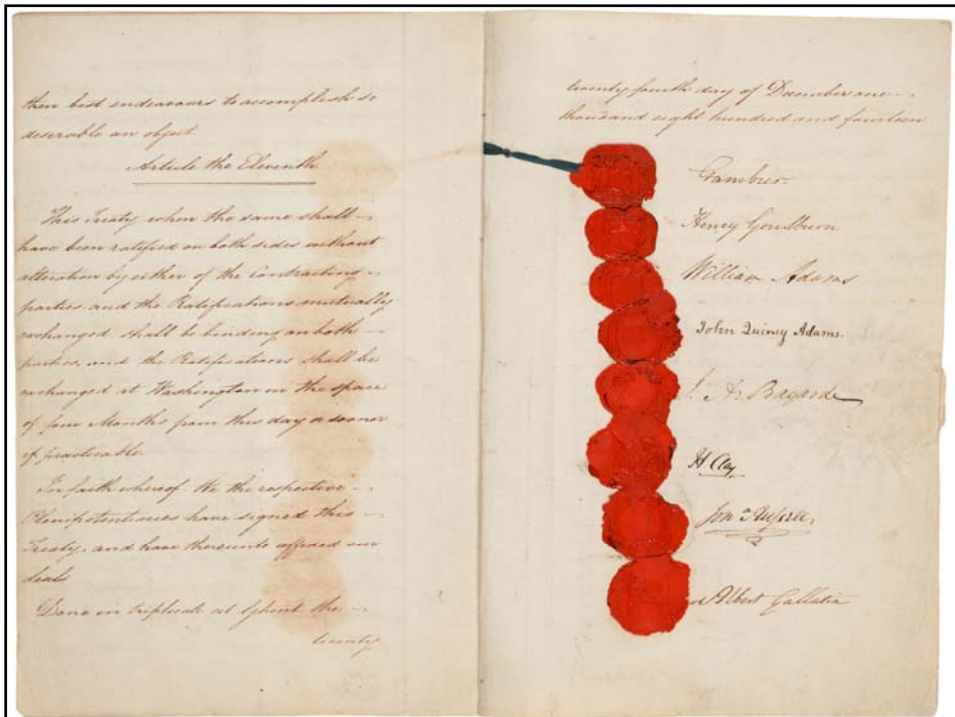 their best endeavours to accomplish so
desirable an object.
Article the Eleventh
This Treaty when the same shall
have been ratified on both sides without
alteration by either of the contracting
parties and the Ratifications mutually
exchanged shall be binding on both
parties, and the Ratifications shall be
exchanged at Washington in the space
of four Months from this day or sooner
if practicable.
In faith whereof We the respective
Plenipotentiaries have signed this
Treaty, and have thereunto affixed our
Seals
Done in triplicate at Ghent the
twenty
twenty fourth day of December one
thousand eight hundred and fourteen
Gambier.
Henry Goulburn
William Adams
John Quincy Adams.
J. A. Bayard
H Clay
Jon.ª Russell,
Albert Gallatin